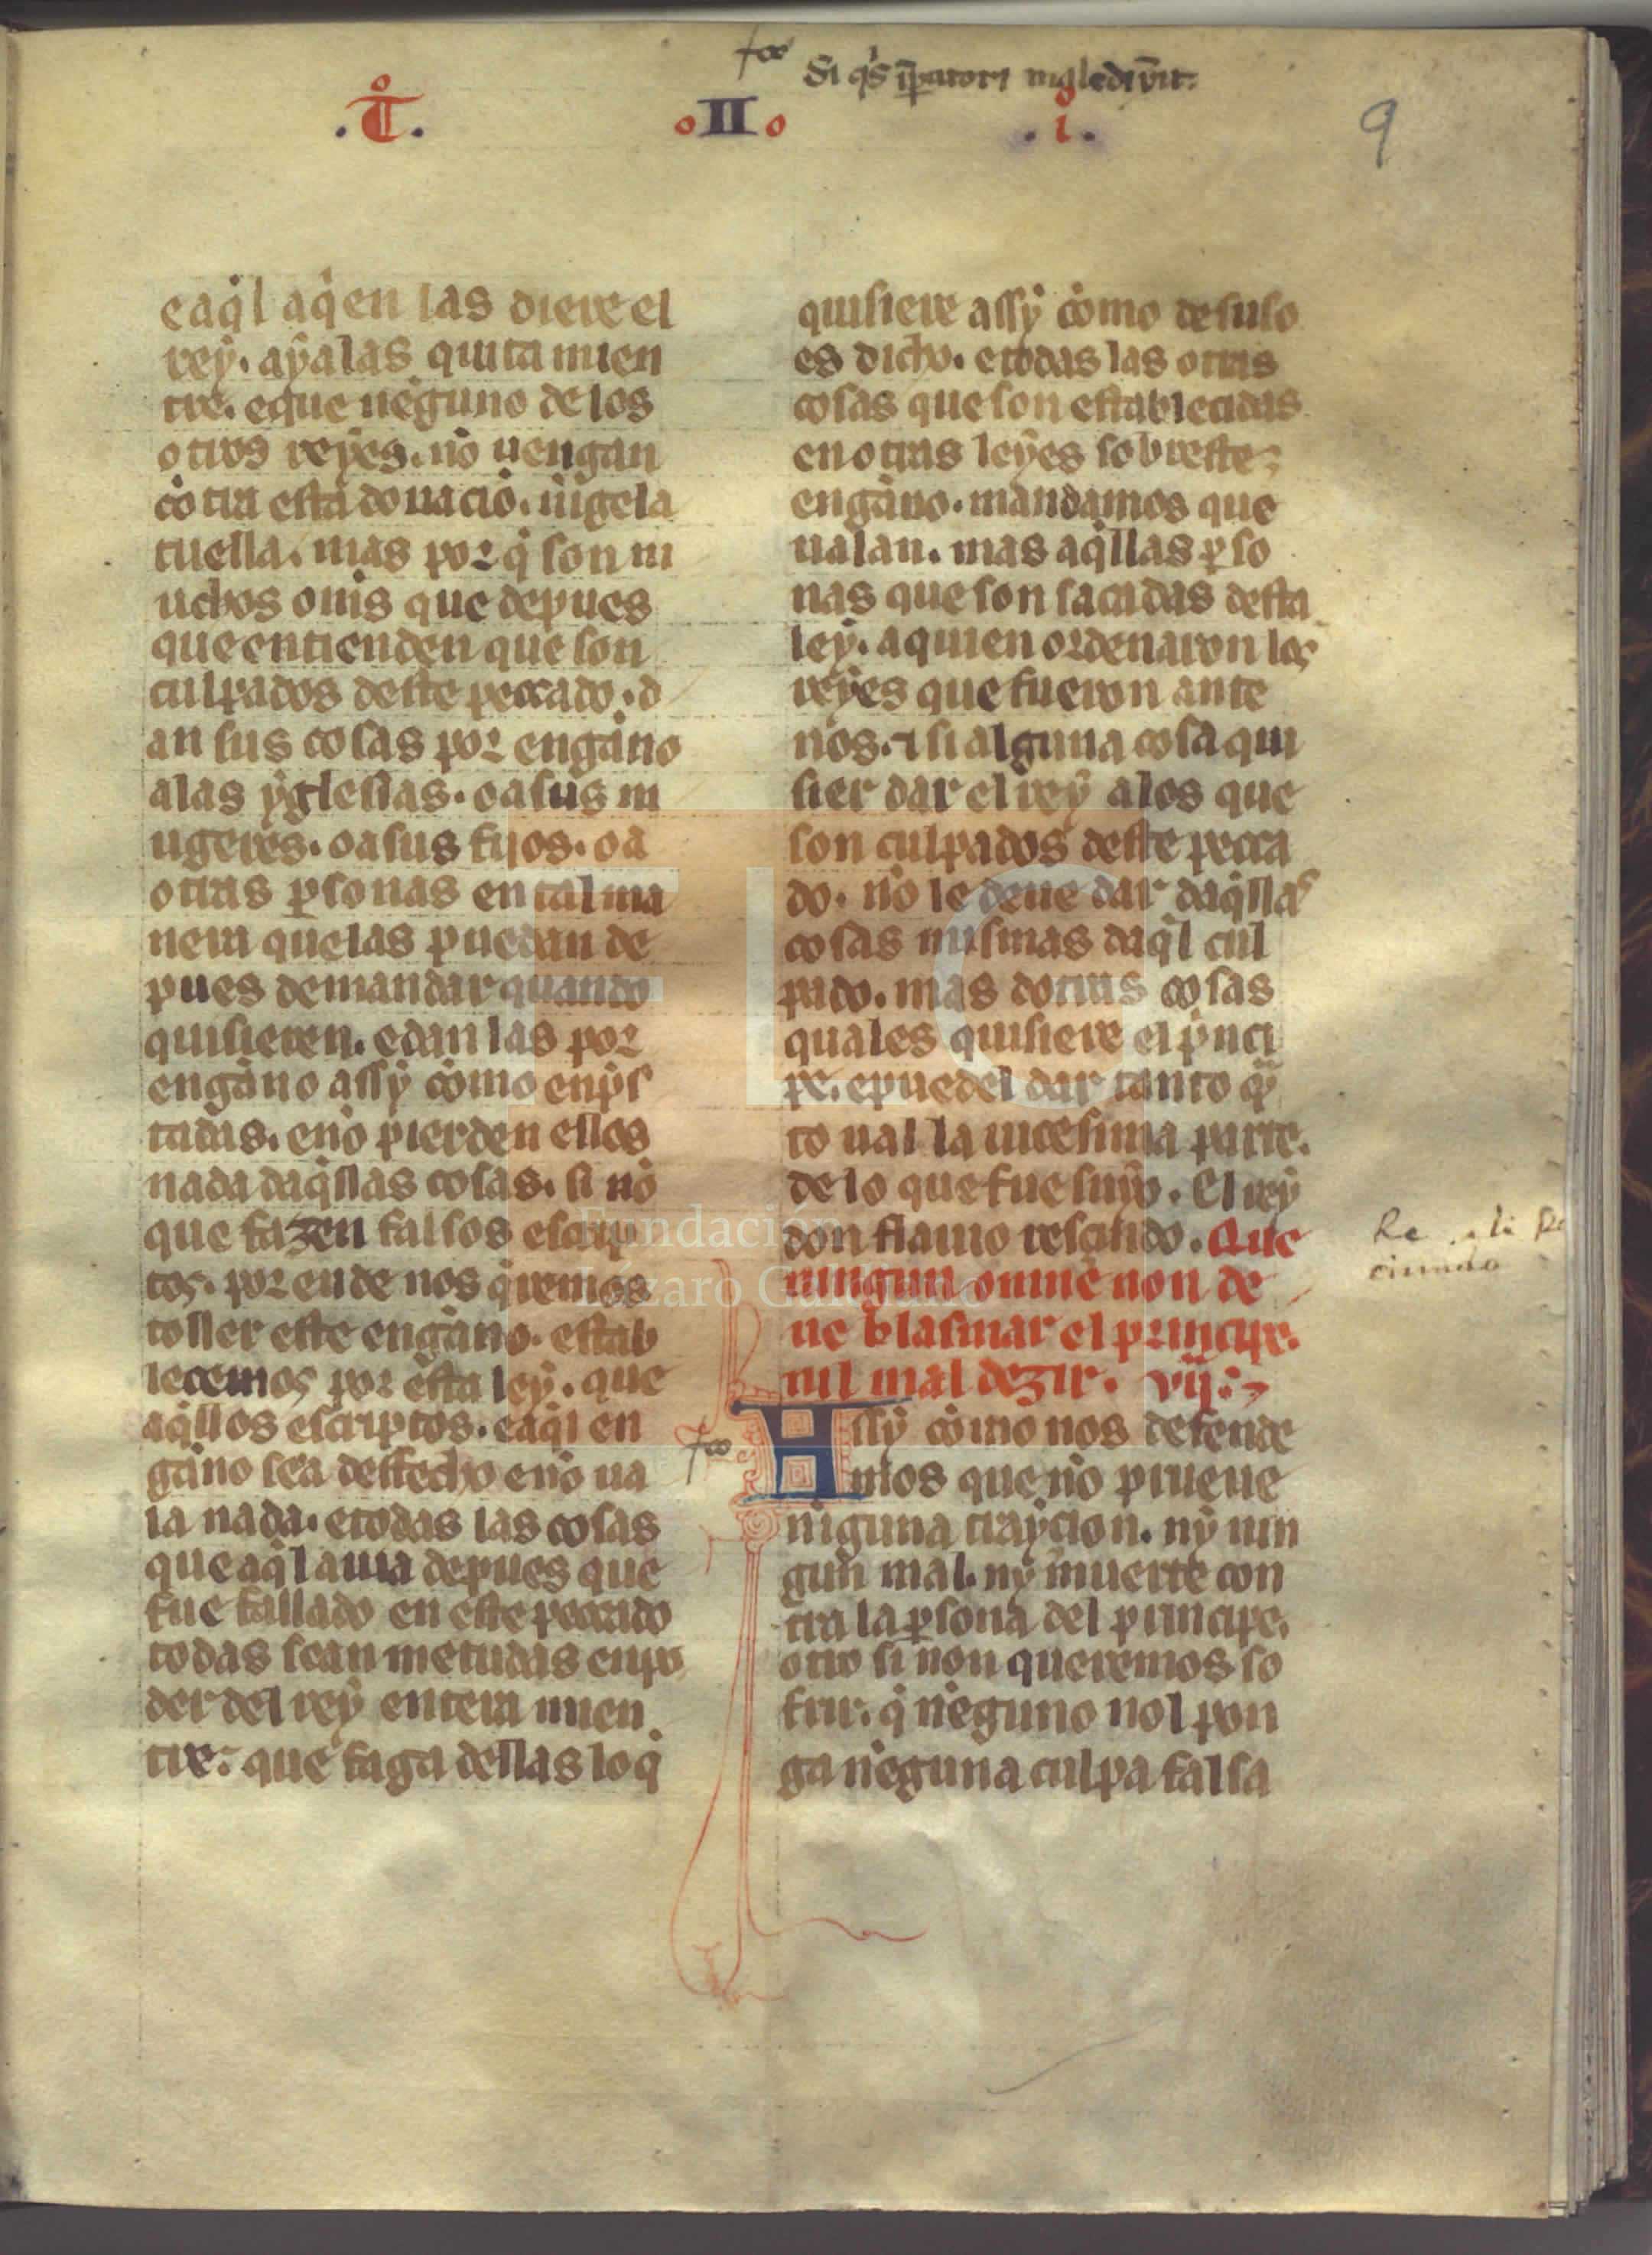 Si q̄s īpatori mgledix̄it.
.T̊. .II. .i̊.
9
e aq̇l aq̇en las diere el
rey. aya las quita mien
tre. e que neguno de los
otros reyes. nō uengan
cōtra esta donaciō. nīge la
tuella. mas por q̇ son m
uchos om̄s que depues
que entienden que son
culpados deste peccado. d
an sus cosas por engāno
a las yglesias. o a sus m
ugeres. o a sus fijos. o a
otras ꝑsonas en tal ma
nera que las puedan de
pues demandar quando
quisieren. e dan las por
engāno assy cōmo enp̄s
tadas. e nō pierden ellos
nada daq̇llas cosas. si nō
que fazen falsos escrip
tos. por ende nos q̇remos
toller este engāno. estab
lecemos por esta ley. que
aq̇llos escriptos. e aq̇l en
gāno sea deffecho e nō ua
la nada. e todas las cosas
que aq̇l auia depues que
fue fallado en este peccado
todas sean metudas en po
der del rey entera mien
tre. que faga dellas lo q̇
quisiere assy cōmo de suso
es dicho. e todas las otras
cosas que son establecidas
en otras leyes sobreste
engāno. mandamos que
ualan. mas aq̇llas ꝑso
nas que son sacadas desta
ley. a quien ordenaron los
reyes que fueron ante
nos. ⁊ si alguna cosa qui
sier dar el rey a los que
son culpados deste pecca
do. nō le deue dar daq̇llas
cosas mismas daq̇l cul
pado. mas dotras cosas
quales quisiere el ṗnci
pe. e puedel dar tanto q̄
to ual la uicesima parte.
de lo que fue suyo. El rey
don flauio rescindo. Que
ningun omne non de
ue blasmar el principe.
nil mal dezir. vij.
Assy cōmo nos defende
mos que nō prueue
niguna traycion. ny nin
gun mal. ny muerte con
tra la ꝑsona del principe.
otro si non queremos so
frir. q̇ neguno nol pon
ga neguna culpa falsa
Fundación
Lázaro Galdiano
FLG